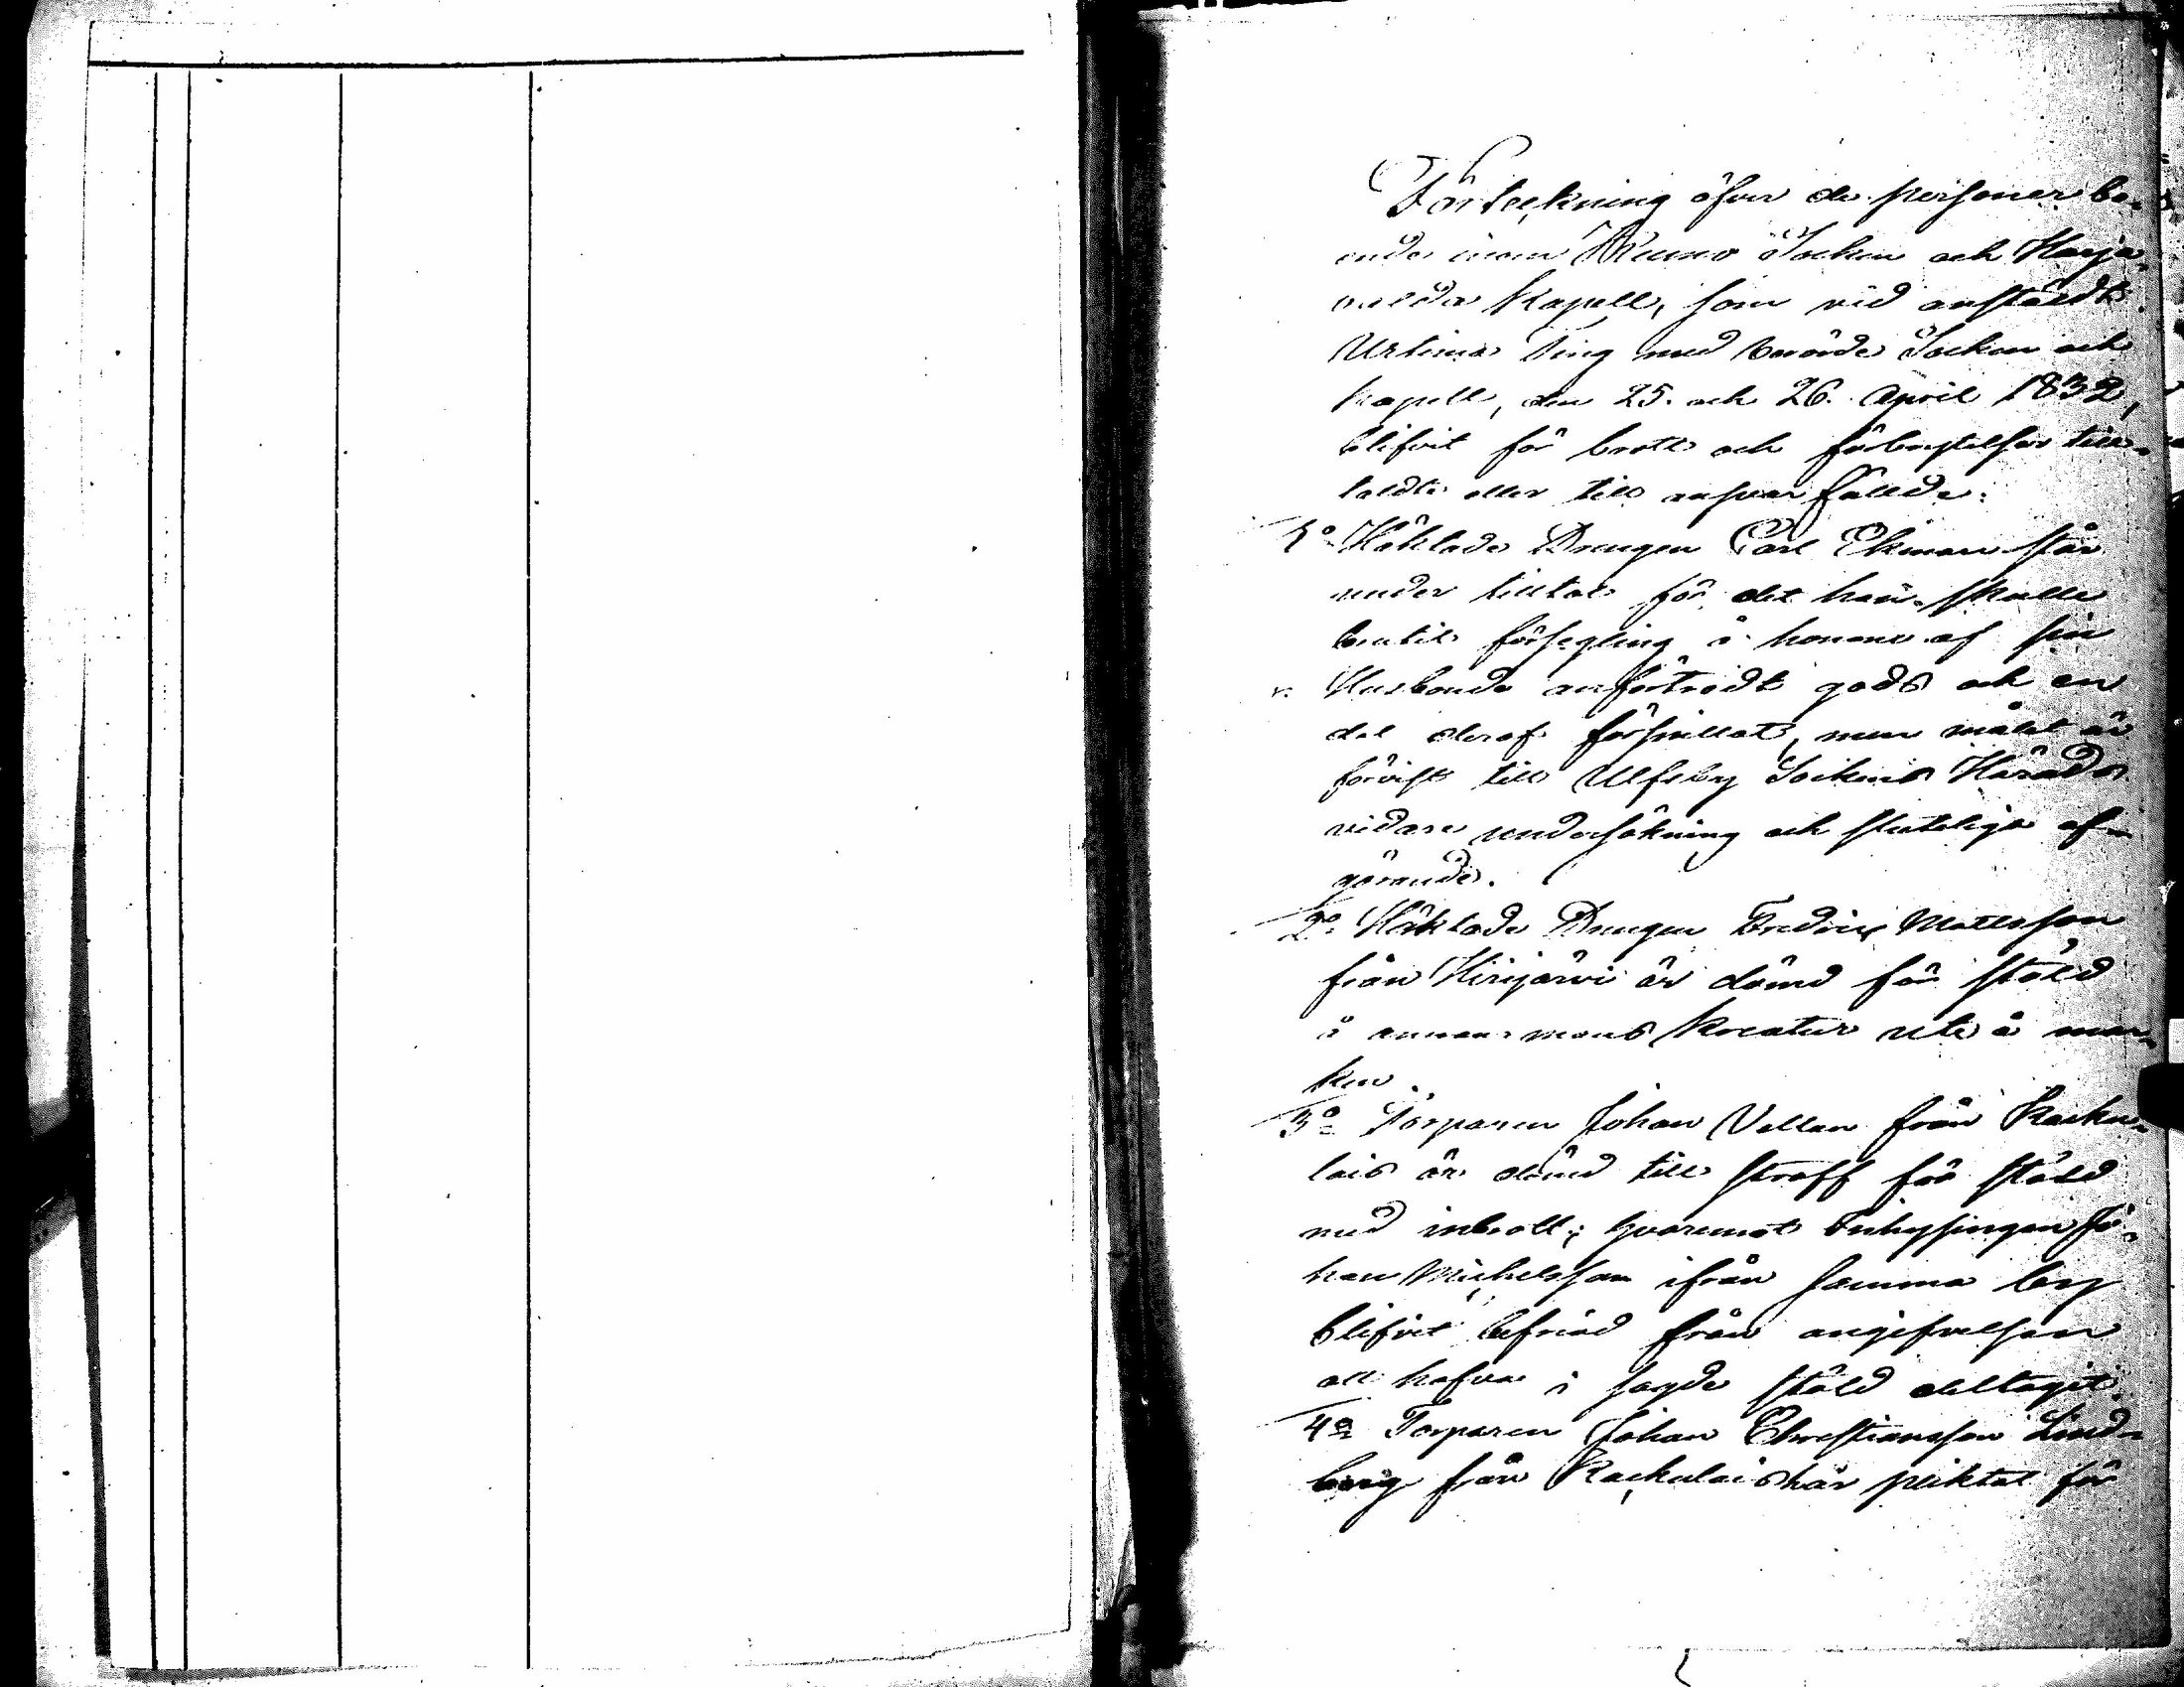 Förteckning öfver de personer bo-
ende inom Kiumo Socken och Harja-
valda Kapell, som vid anstäldt
Urtima Ting med berörde Socken och
Kapell, den 25. och 26. April 1832,
blifvit för brott och förbrytelser till-
taldte eller till ansvar fällde:
1o Häktade Drengen Carl Ekman står
under tilltal för det han skulle
brutit försegling å honom af sin
Husbonde anförtrodt gods och en
del deraf förspillat, men målet är
förvist till Ulfsby Sockens Härads
vidare undersökning och slutliga af-
görande.
2o Häktade Drengen Fredric Mattsson
från Hirijärvi är dömd för stöld
å annan mans Kreatur ute å mar-
ken
3o Torparen Johan Vallan från Kaiku-
lais är dömd till straff för stöld
med inbrott; hvaremot Inhysingen Jo-
han Michelsson ifrån samma by
blifvit befriad från angifvelsen
att hafva i sagde stöld deltagit.
4o Torparen Johan Christiansson Lind-
berg från Rackulais har pliktat för